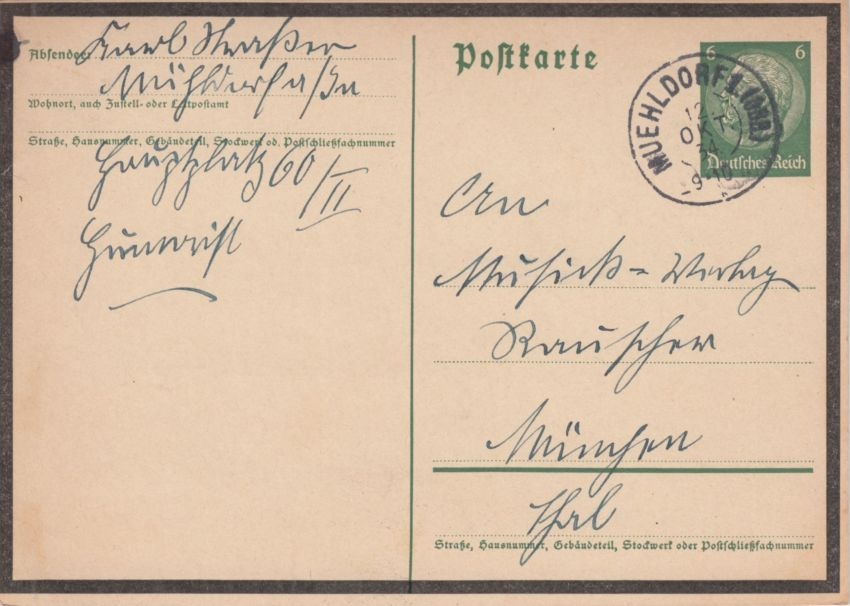 Absender: Karl Straßer
Mühldorf a/Inn
Wohnort, auch Zustell- oder Leitpostamt
Straße, Hausnummer, Gebäudeteil, Stockwerk od. Postschließfachnummer
Hauptplatz 60/II
Humorist
Postkarte
6 6
Deutsches Reich
MUEHLDORF 1 (INN)
12
OKT
34
9-10
An
Musick-Verlag
Rauscher
München
Thal
Straße, Hausnummer, Gebäudeteil, Stockwerk oder Postschließfachnummer